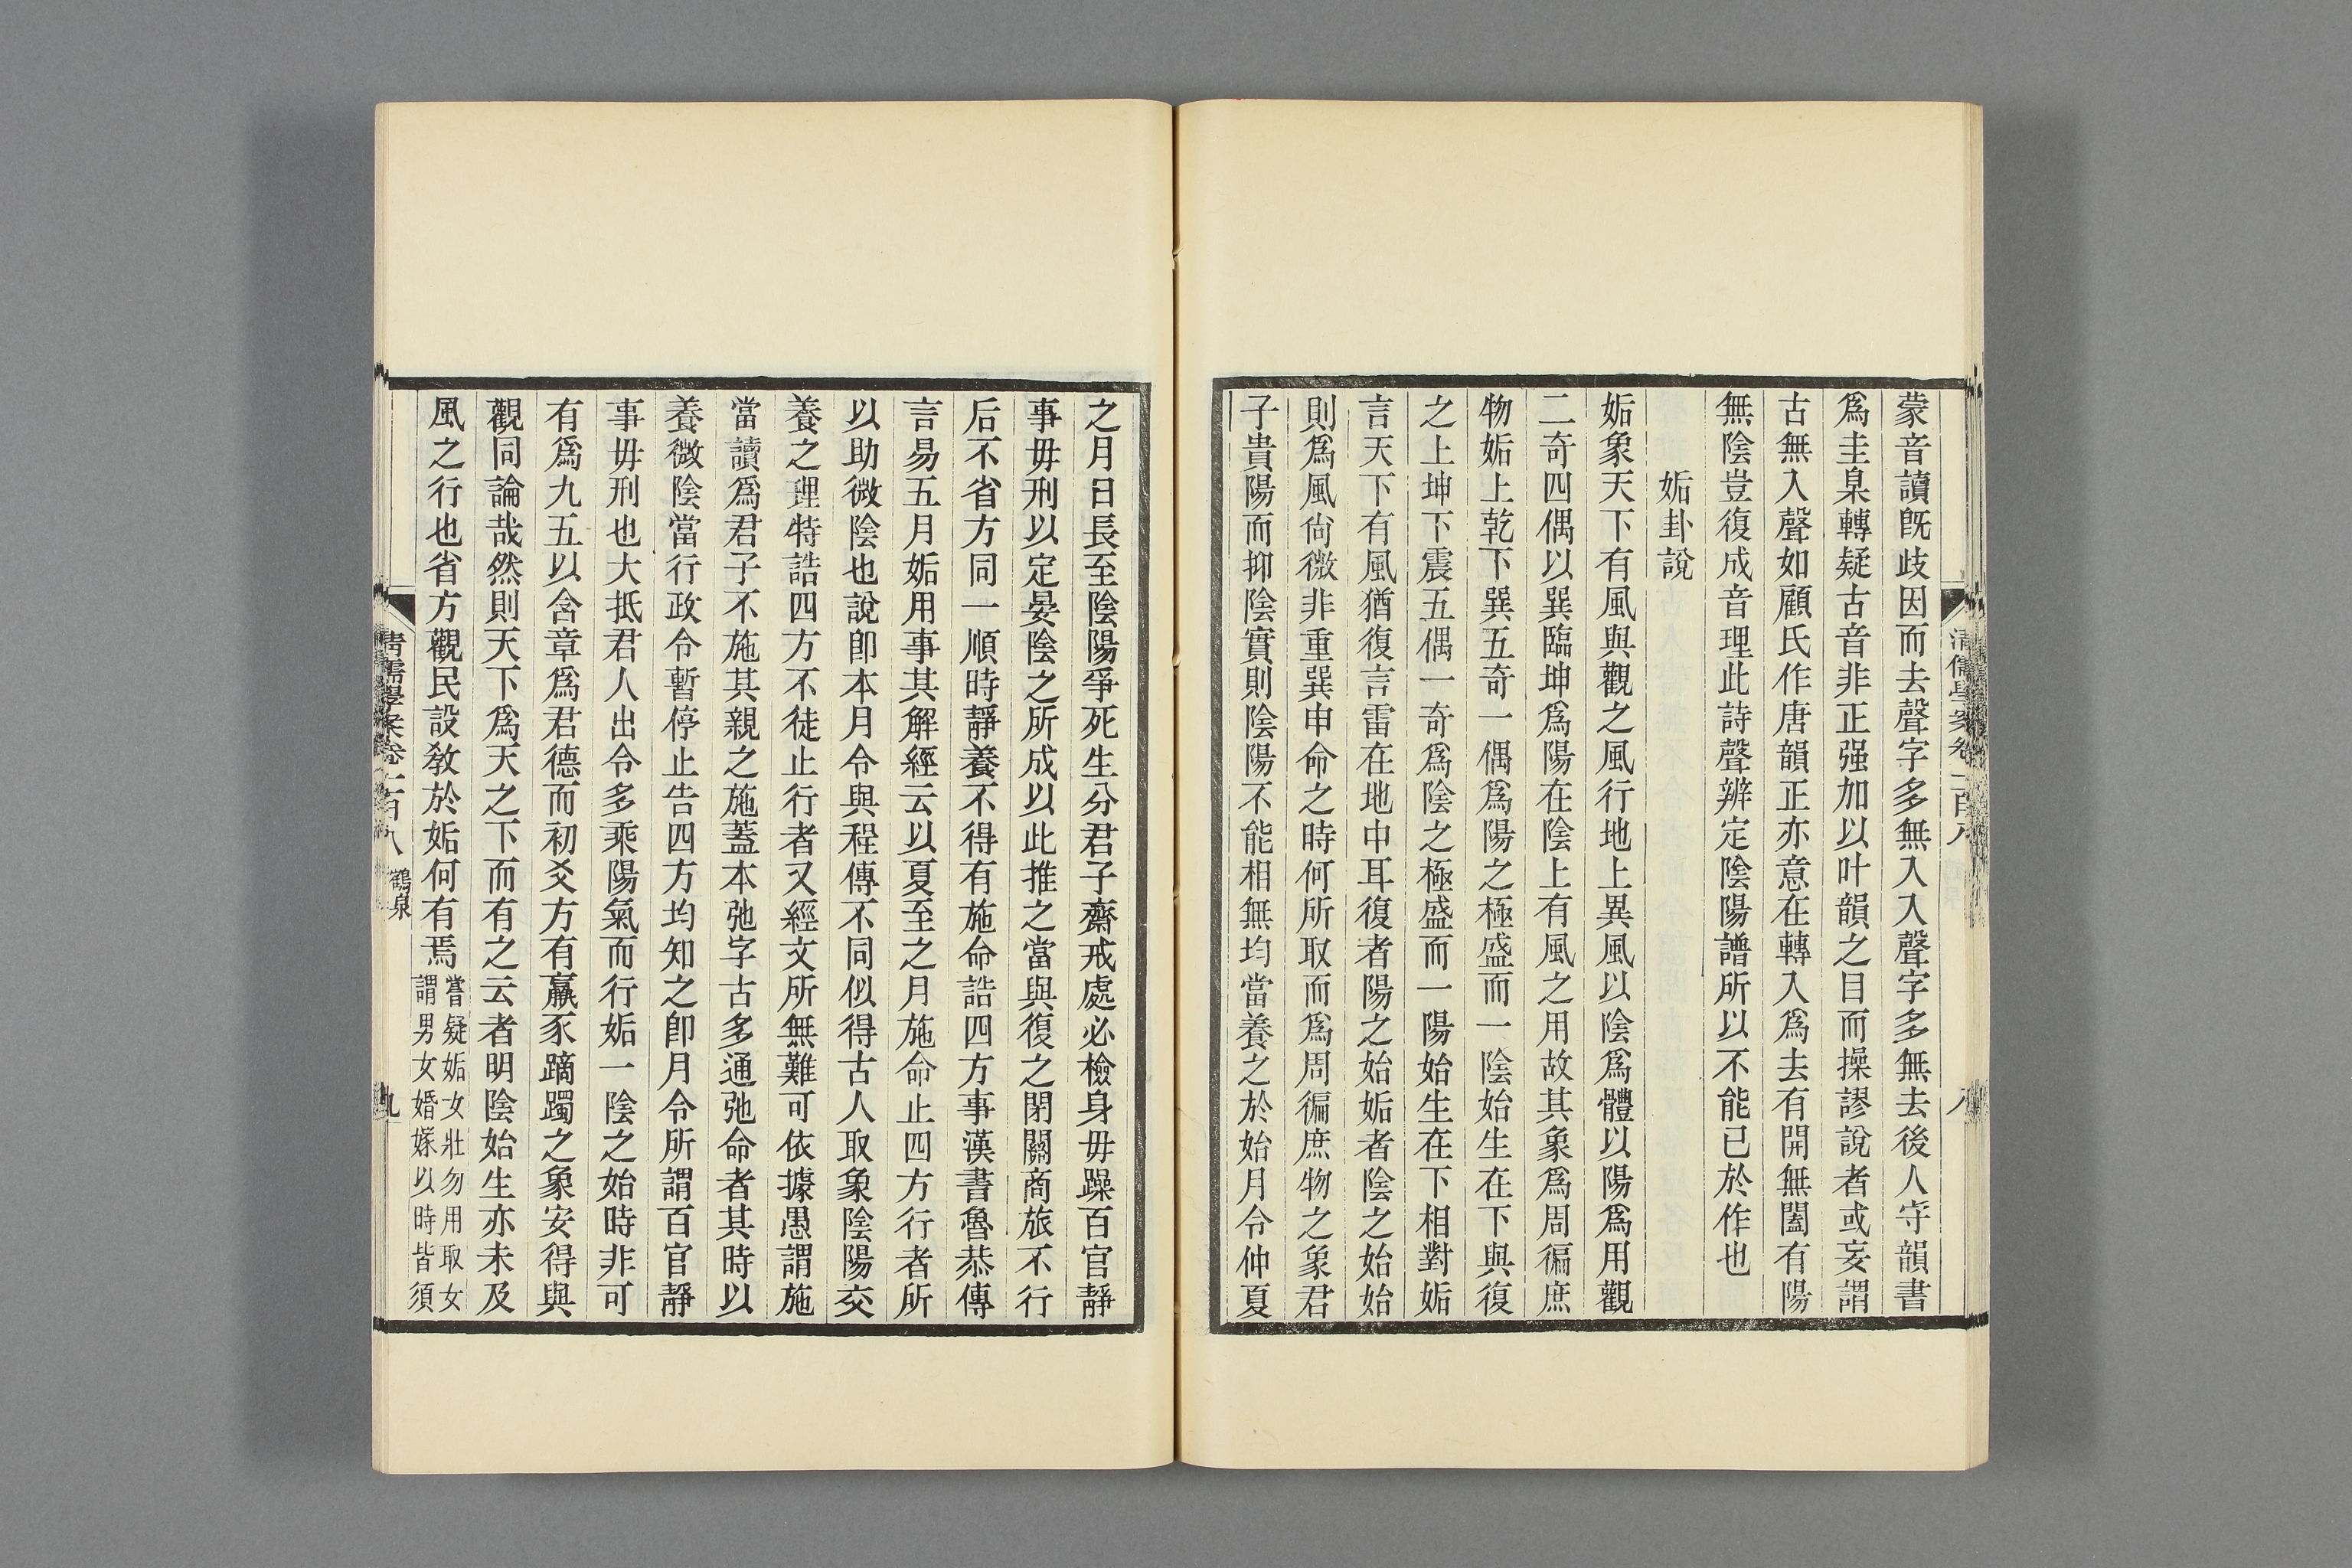 蒙音讀旣歧因而去聲字多無入入聲字多無去後人守韻書
爲圭臬轉疑古音非正强加以叶韻之目而操謬說者或妄謂
古無入聲如顧氏作唐韻正亦意在轉入爲去有開無闔有陽
無陰豈復成音理此詩聲辨定陰陽譜所以不能已於作也
姤卦說
姤象天下有風與觀之風行地上異風以陰爲體以陽爲用觀
二奇四偶以巽臨坤爲陽在陰上有風之用故其象爲周徧庶
物姤上乾下巽五奇一偶爲陽之極盛而一陰始生在下與復
之上坤下震五偶一奇爲陰之極盛而一陽始生在下相對姤
言天下有風猶復言雷在地中耳復者陽之始姤者陰之始始
則爲風尙微非重巽申命之時何所取而爲周徧庶物之象君
子貴陽而抑陰實則陰陽不能相無均當養之於始月令仲夏
之月日長至陰陽爭死生分君子齋戒處必檢身毋躁百官靜
事毋刑以定晏陰之所成以此推之當與復之閉關商旅不行
后不省方同一順時靜養不得有施命誥四方事漢書魯恭傳
言易五月姤用事其解經云以夏至之月施命止四方行者所
以助微陰也說卽本月令與程傳不同似得古人取象陰陽交
養之理特誥四方不徒止行者又經文所無難可依據愚謂施
當讀爲君子不施其親之施蓋本弛字古多通弛命者其時以
養微陰當行政令暫停止告四方均知之卽月令所謂百官靜
事毋刑也大抵君人出令多乘陽氣而行姤一陰之始時非可
有爲九五以含章爲君德而初爻方有羸豕蹢躅之象安得與
觀同論哉然則天下爲天之下而有之云者明陰始生亦未及
風之行也省方觀民設敎於姤何有焉
嘗疑姤女壯勿用取女
謂男女婚嫁以時皆須
清儒學案卷二百八
八
清儒學案卷二百八 鶴泉
九